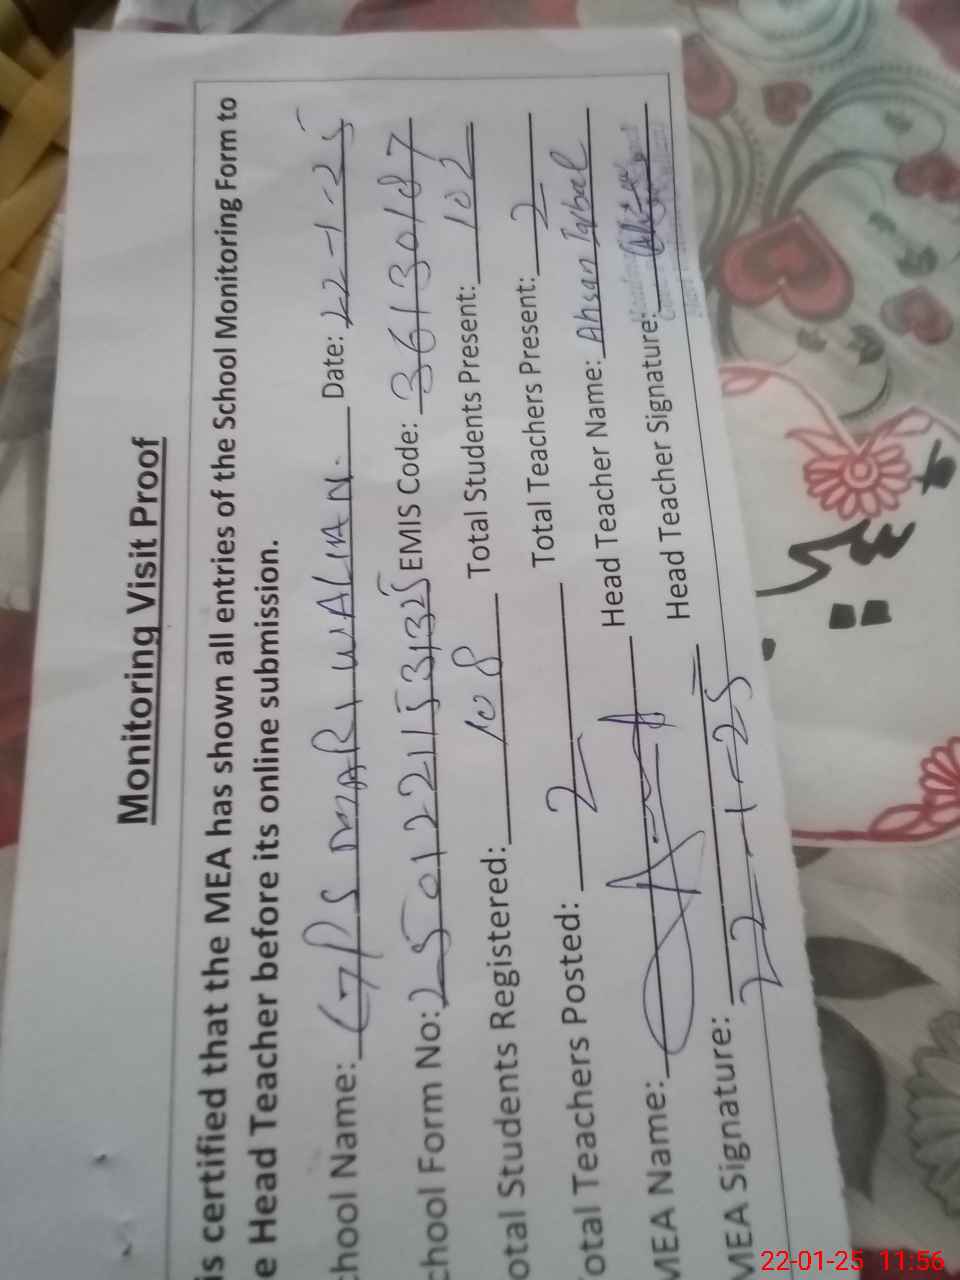 Monitoring Visit Proof
is certified that the MEA has shown all entries of the School Monitoring Form to
e Head Teacher before its online submission.
chool Name: GPS MARI WALIAN. Date: 22-1-25
chool Form No: 25012211531325 EMIS Code: 36130187
otal Students Registered: 108 Total Students Present: 102
otal Teachers Posted: 2 Total Teachers Present: 2
MEA Name: Head Teacher Name: Ahsan Iqbal
MEA Signature: 22-1-25 Head Teacher Signature:
22-01-25 11:56